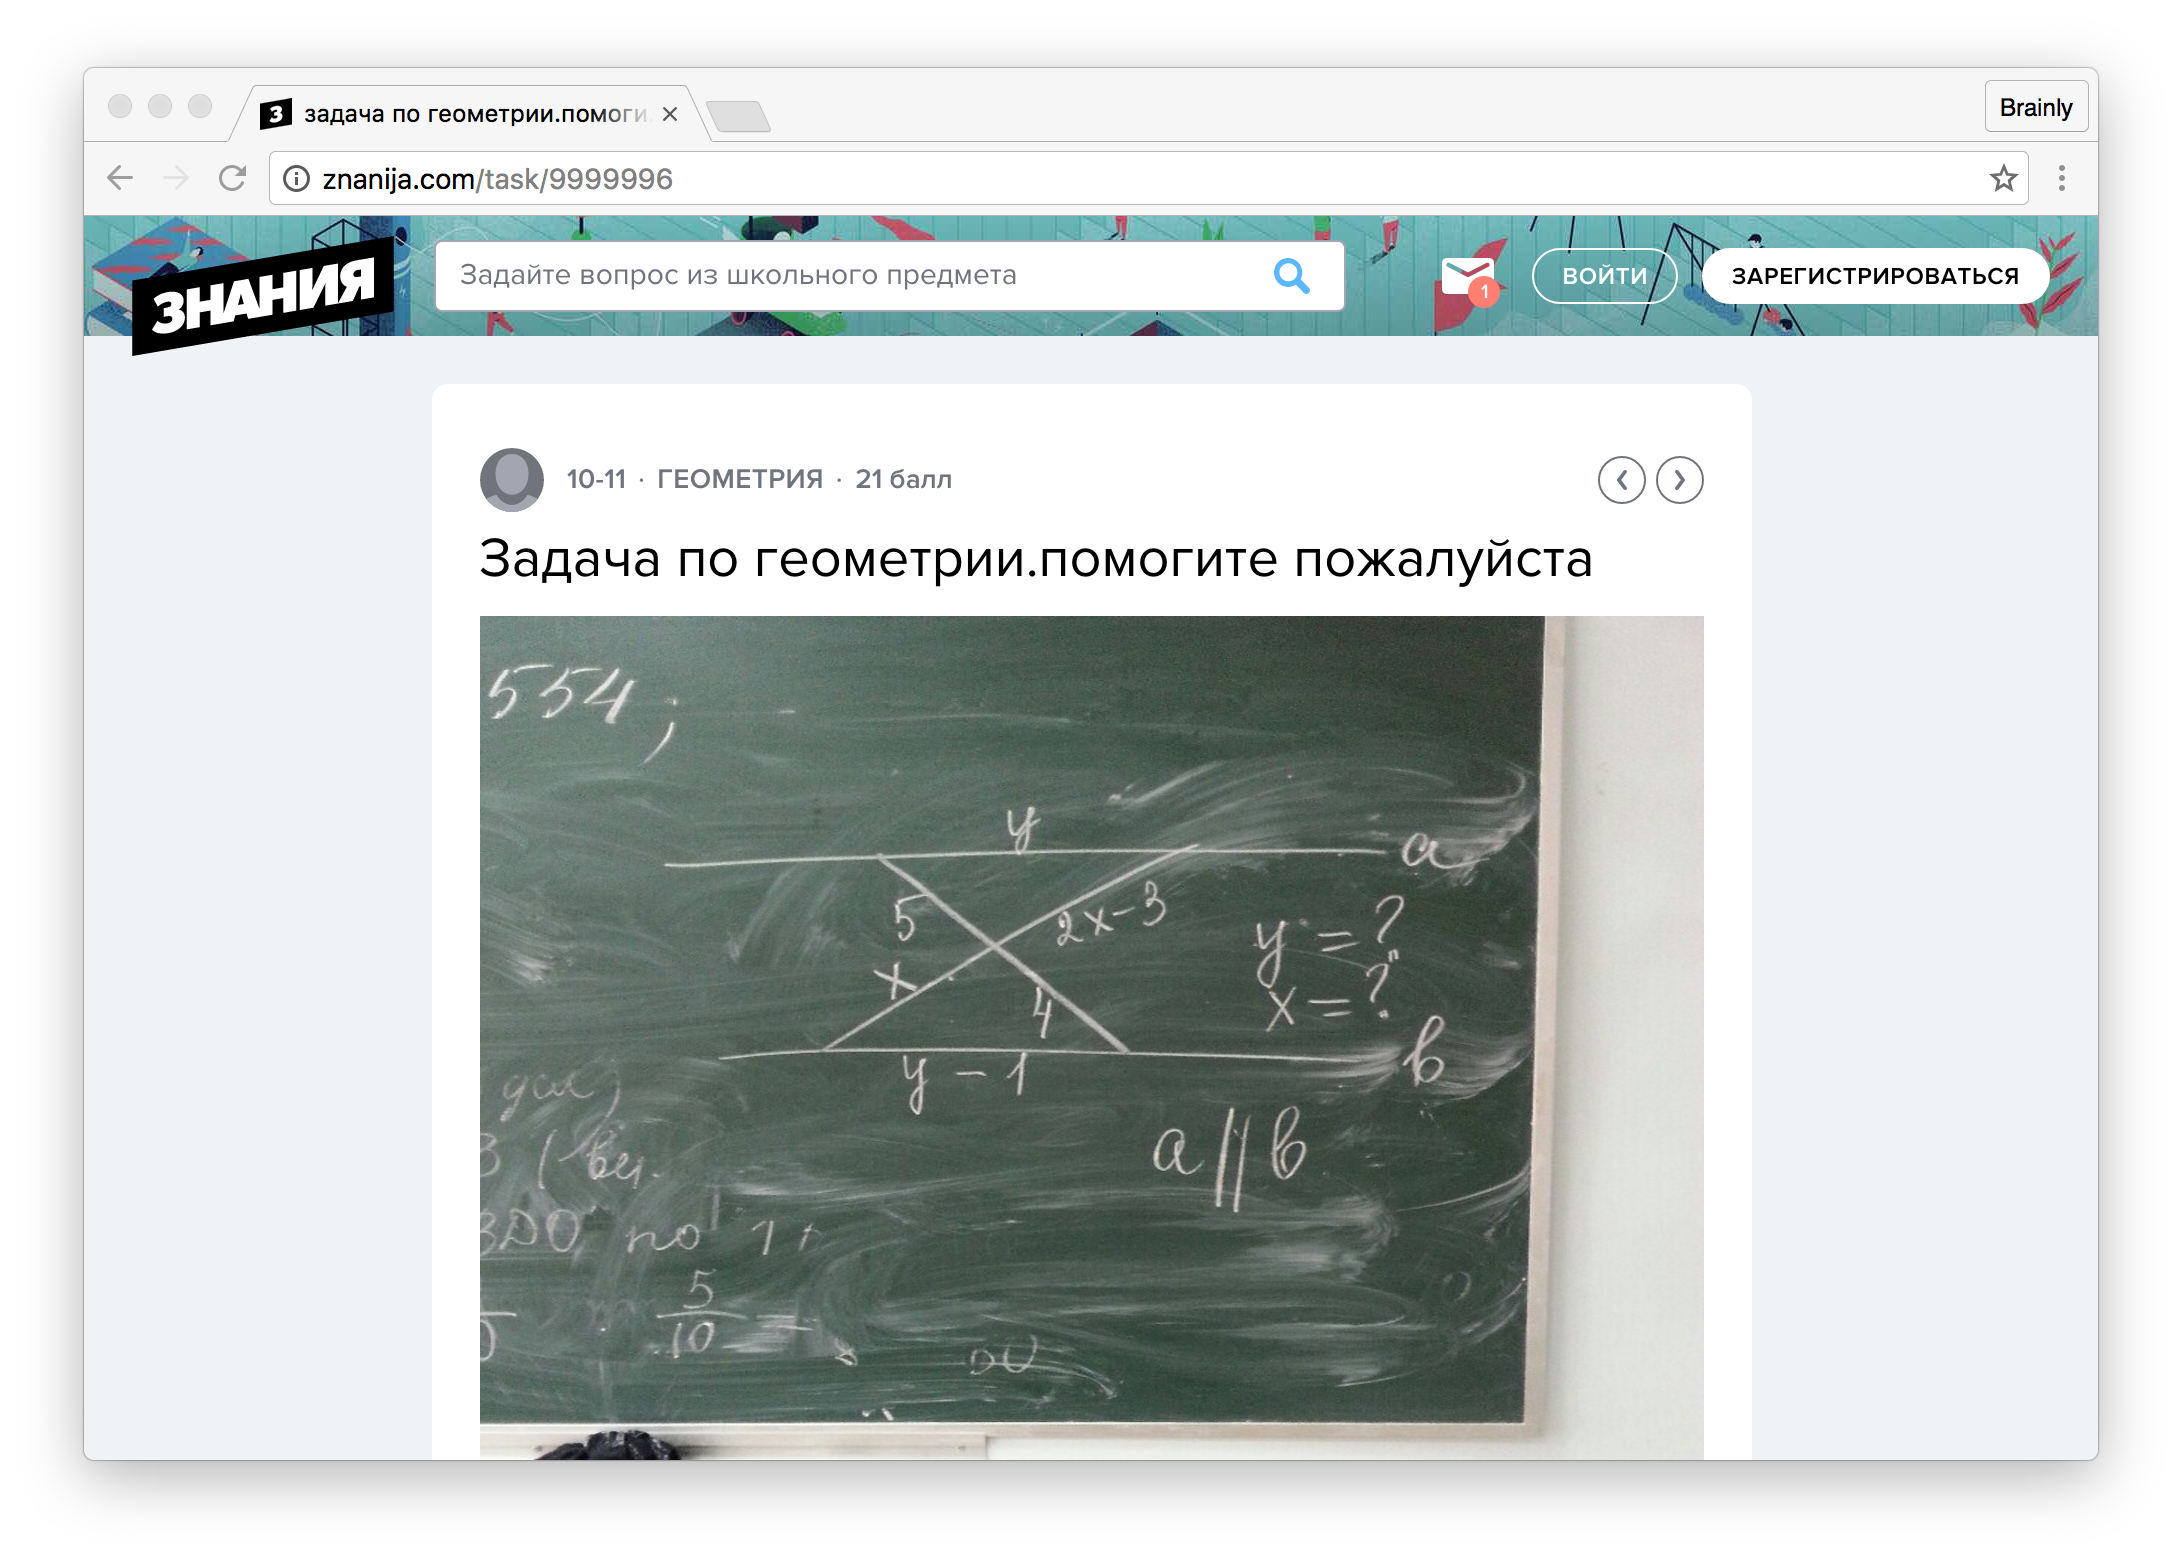 задача по геометрии.помоги
Brainly
znanija.com/task/9999996
ЗНАНИЯ
Задайте вопрос из школьного предмета
1
ВОЙТИ
ЗАРЕГИСТРИРОВАТЬСЯ
10-11 · ГЕОМЕТРИЯ · 21 балл
Задача по геометрии.помогите пожалуйста
554;
y
a
5
2x-3
y = ?
x
4
x = ?
в
y - 1
a || в
по 1
5
10